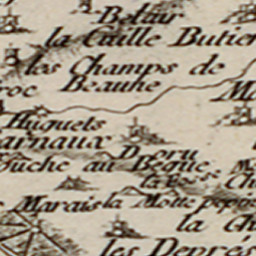 Belair
la Caille Butier
les Champs de
roc Beauhe
Huguets
arnaux Doru
ouche au Begue
la Fosse Ch
Marais la Motte pepin
la Ch
les Deprés